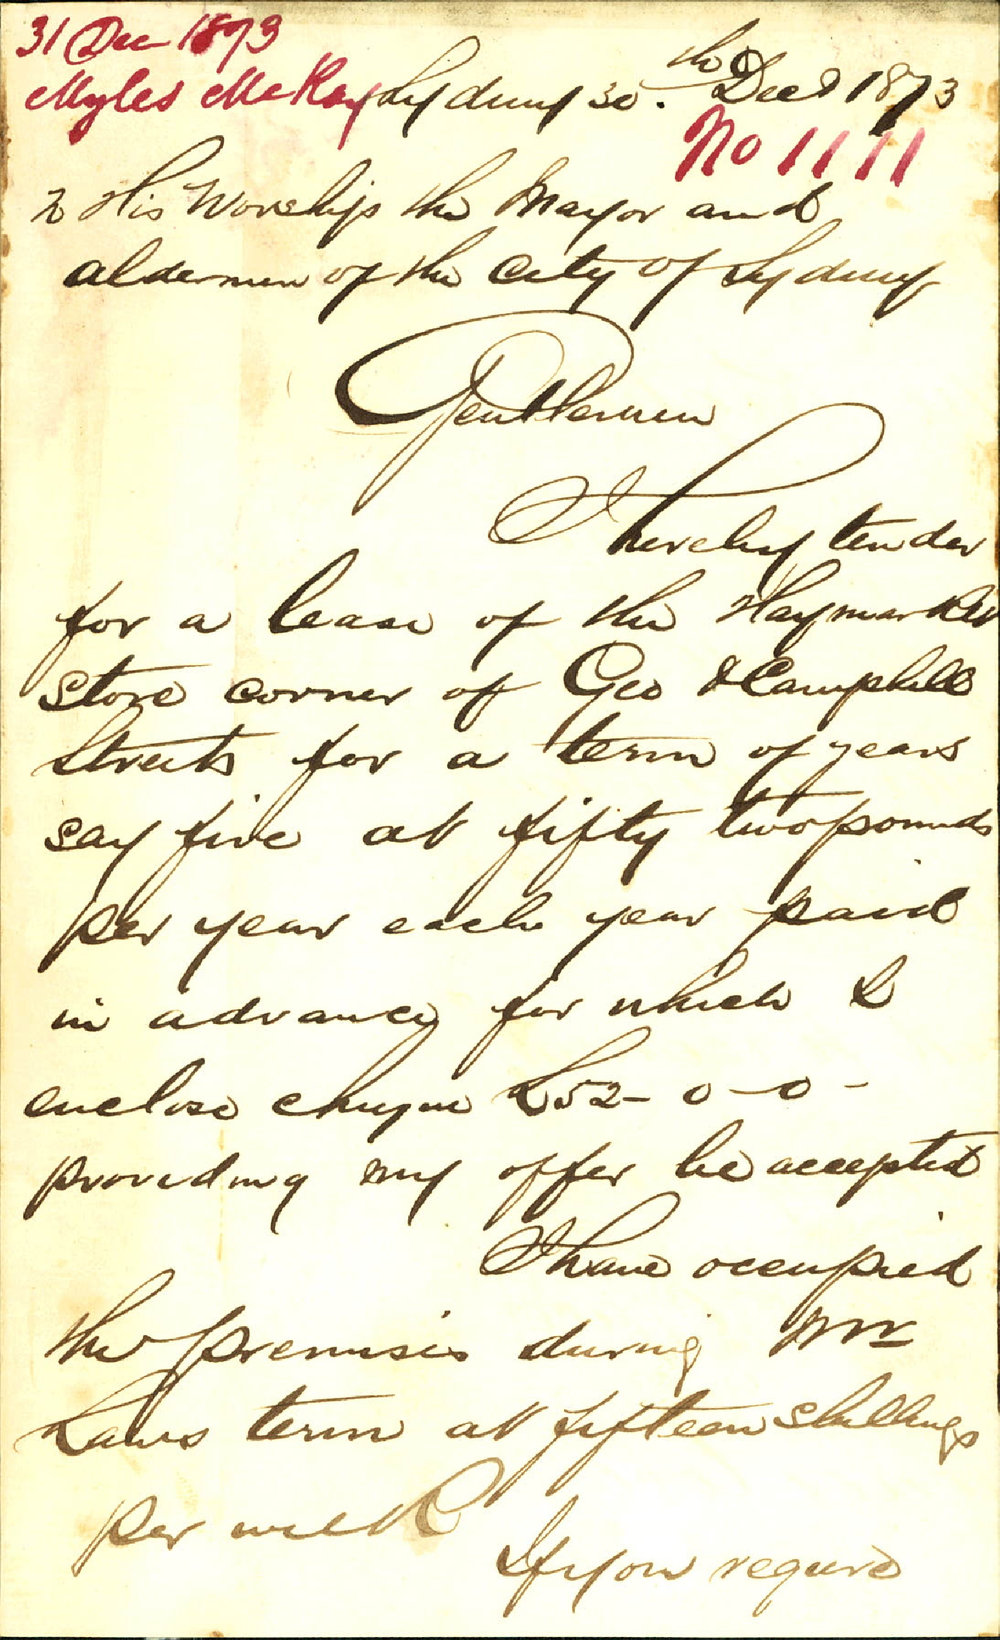 31 Dec 1873
Myles McKay
Sydney 30th Decr 1873
No 1111
To His Worship the Mayor and
aldermen of the City of Sydney
Gentlemen
I hereby tender
for a lease of the Haymarket
Store corner of Geo & Campbell
Streets for a term of years
say five at fifty two pounds
per year each year paid
in advance for which I
enclose cheque £52-0-0-
providing my offer be accepted
I have occupied
the premises during Mr
Laws term at fifteen shillings
per week
If you require